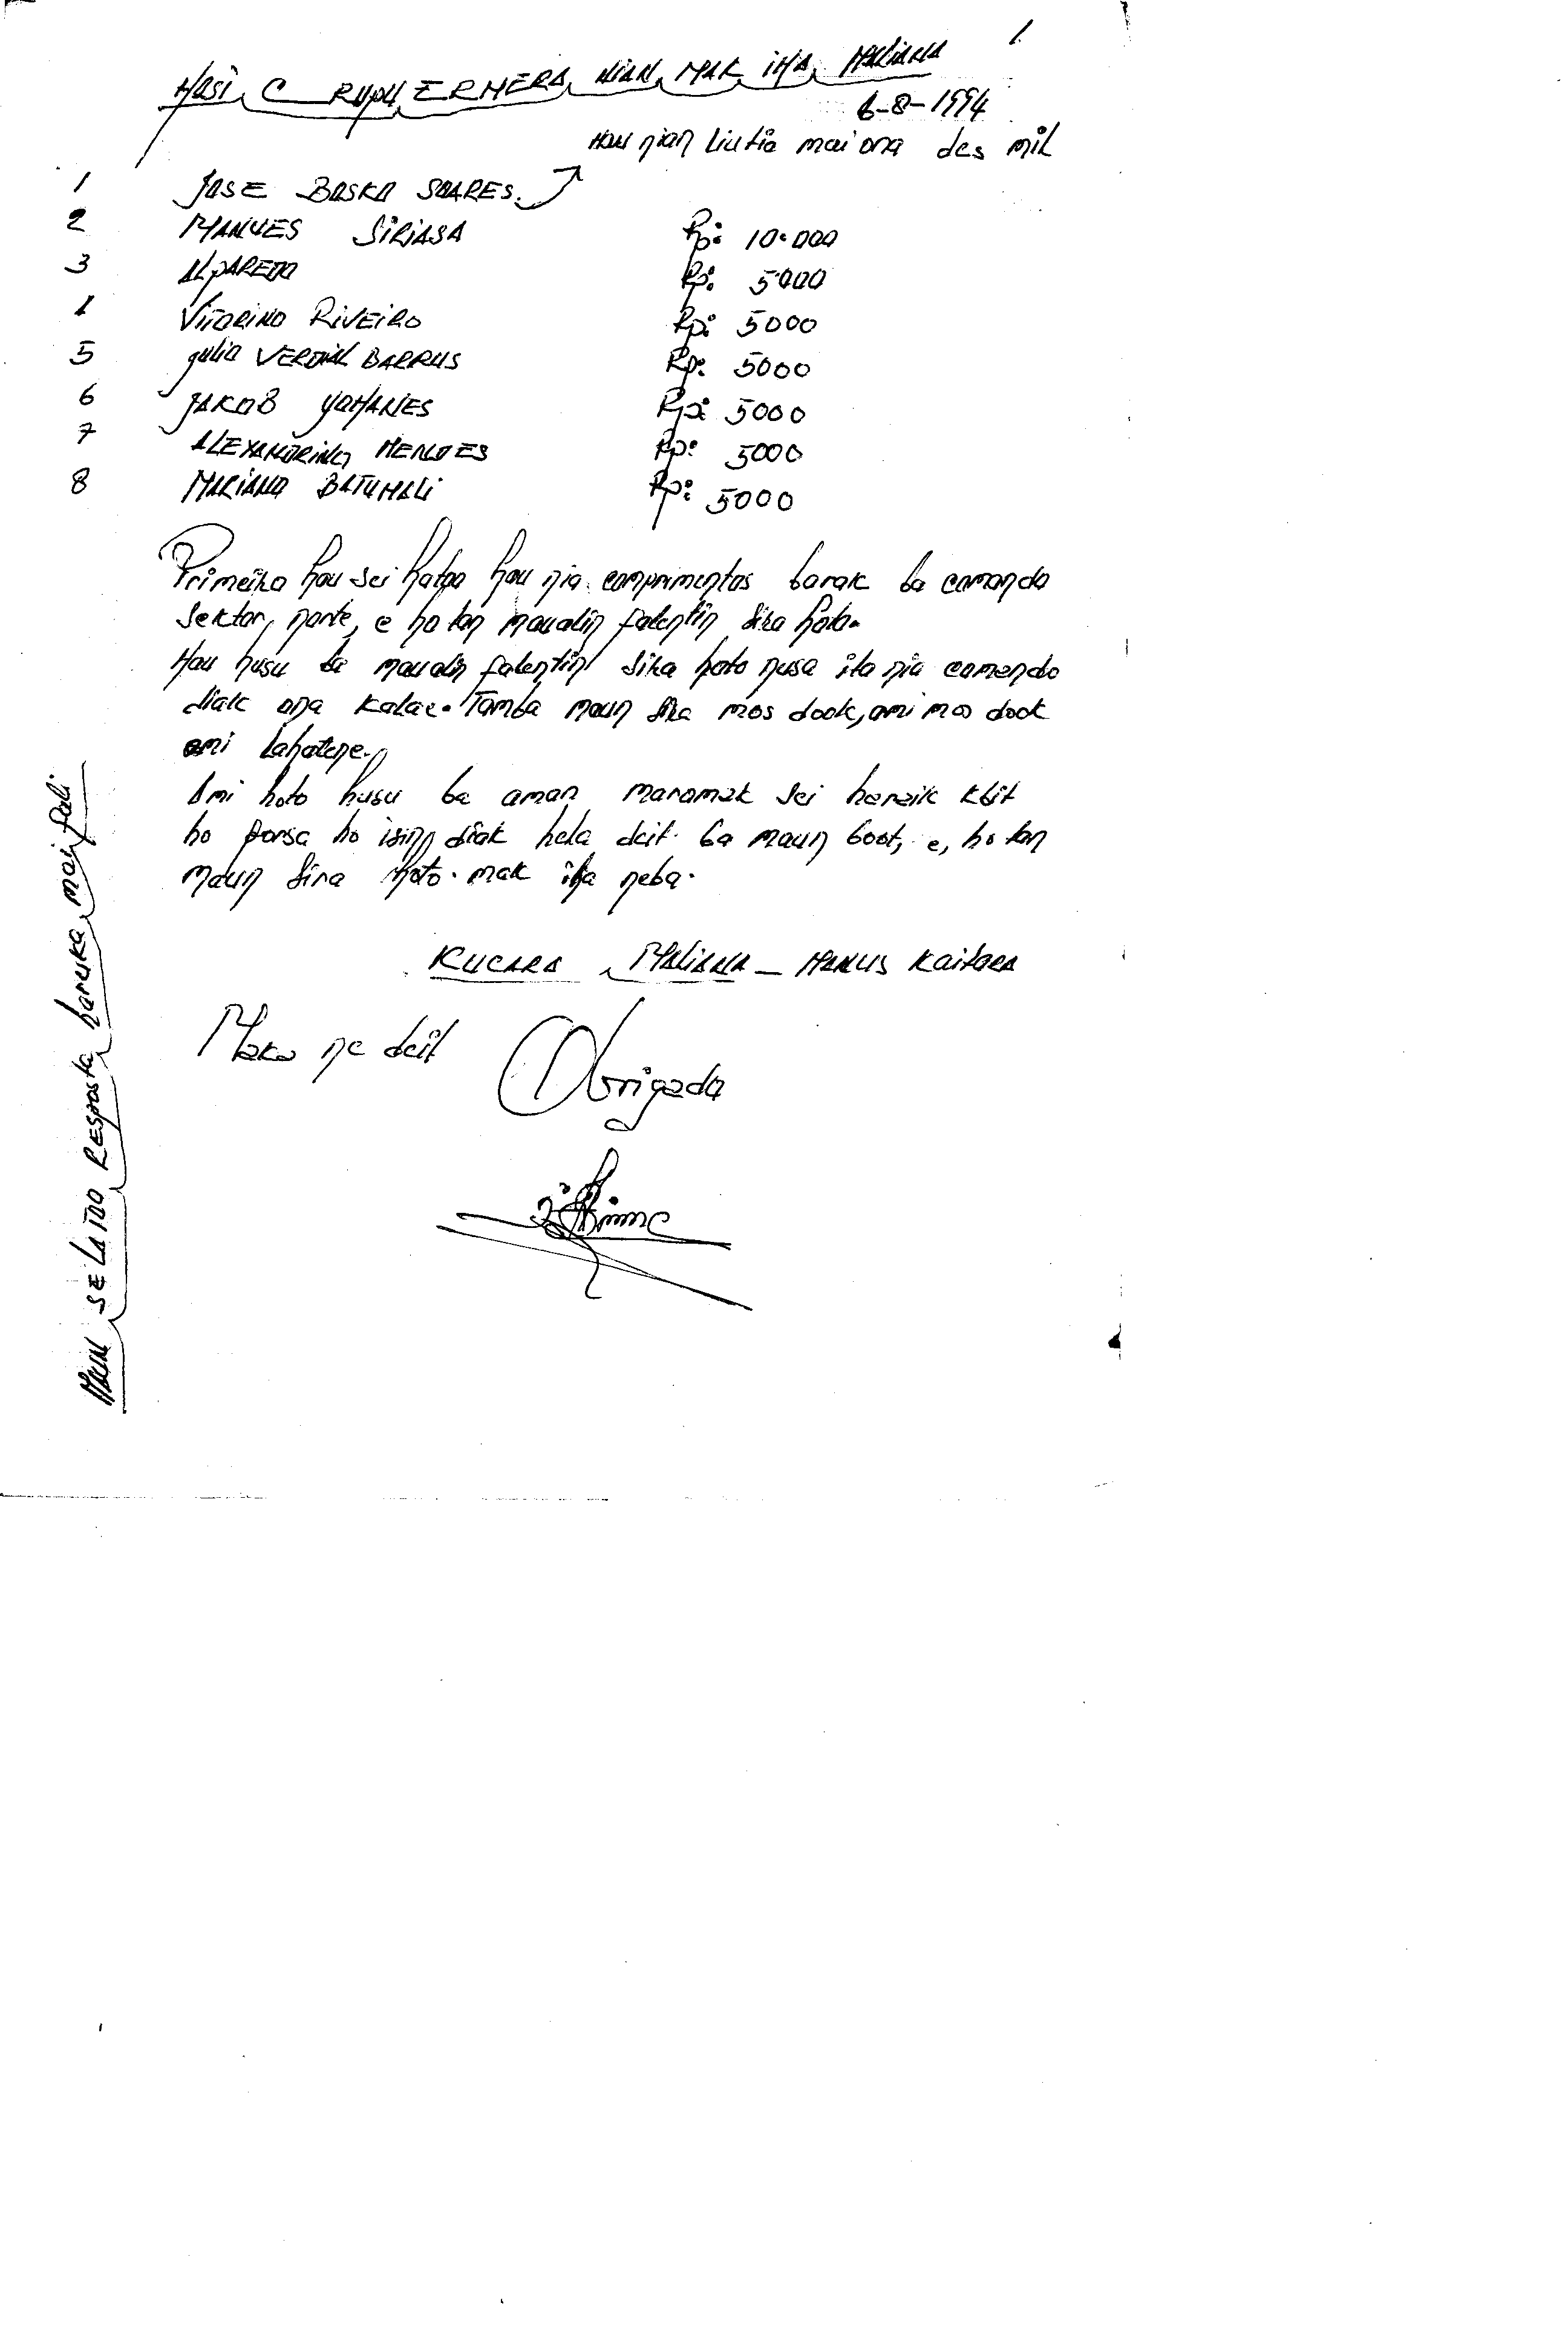 1.
HUSI C RUPU ERMERA NIAN MAK IHA MALIANA
6-8-1994
Hau nian liutia mai ona des mil
1 JOSE BOSKO SOARES.
2 MANUES SIRIASA Rp: 10.000
3 ALPAREDO Rp. 5000
1 VITORINO RIVEIRO Rp: 5000
5 gulio VERDIAL BARRUS Rp. 5000
6 JAKOB YOHANES Rp: 5000
7 ALEXANDRINO MENDES Rp: 5000
8 MARIANO BATUMALI Rp: 5000
Primeiro hau sei hatoo hau nia comprimentos barak ba comando
Sektor, norte, e ho tan maualin falentin sira hoto.
Hau husu ba maualin falentin sira hoto nusa ita nia comendo
diak ona kalae. Tamba maun sira mos dook, ami mos dook
ami lahatene.
Ami hoto husu ba aman maromak sei haraik kbit
ho forsa ho isin diak hela deit. ba maun boot, e, ho tan
maun sira hoto. mak iha neba.
KUCARA MALIANA - MANUS KAITARA
Mako ne deit Obrigado
MAUN SE LA TOO RESPOSTA haruka mai fali